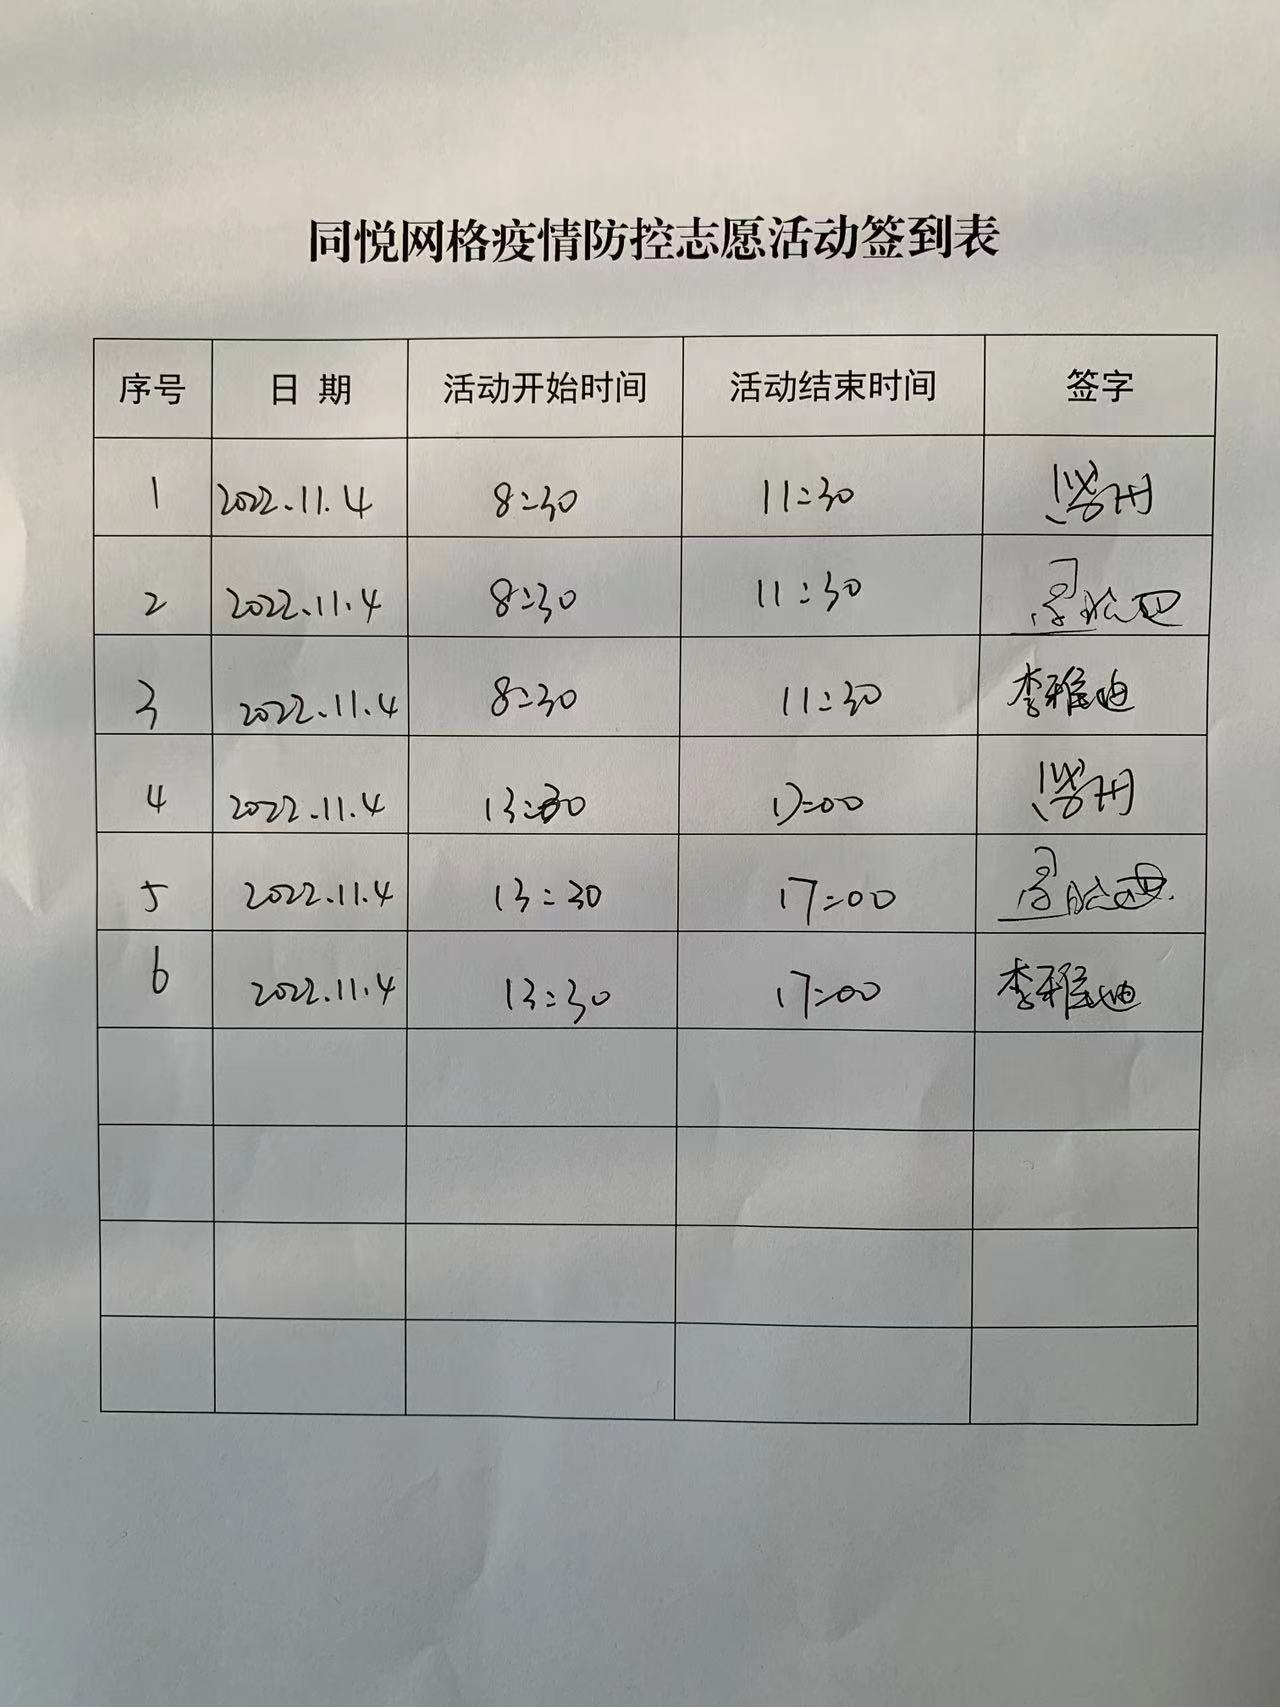 同悦网格疫情防控志愿活动签到表
序号 日 期 活动开始时间 活动结束时间 签字
1 2022.11.4 8:30 11:30
2 2022.11.4 8:30 11:30
3 2022.11.4 8:30 11:30 李雅迪
4 2022.11.4 13:30 17:00
5 2022.11.4 13:30 17:00
6 2022.11.4 13:30 17:00 李雅迪